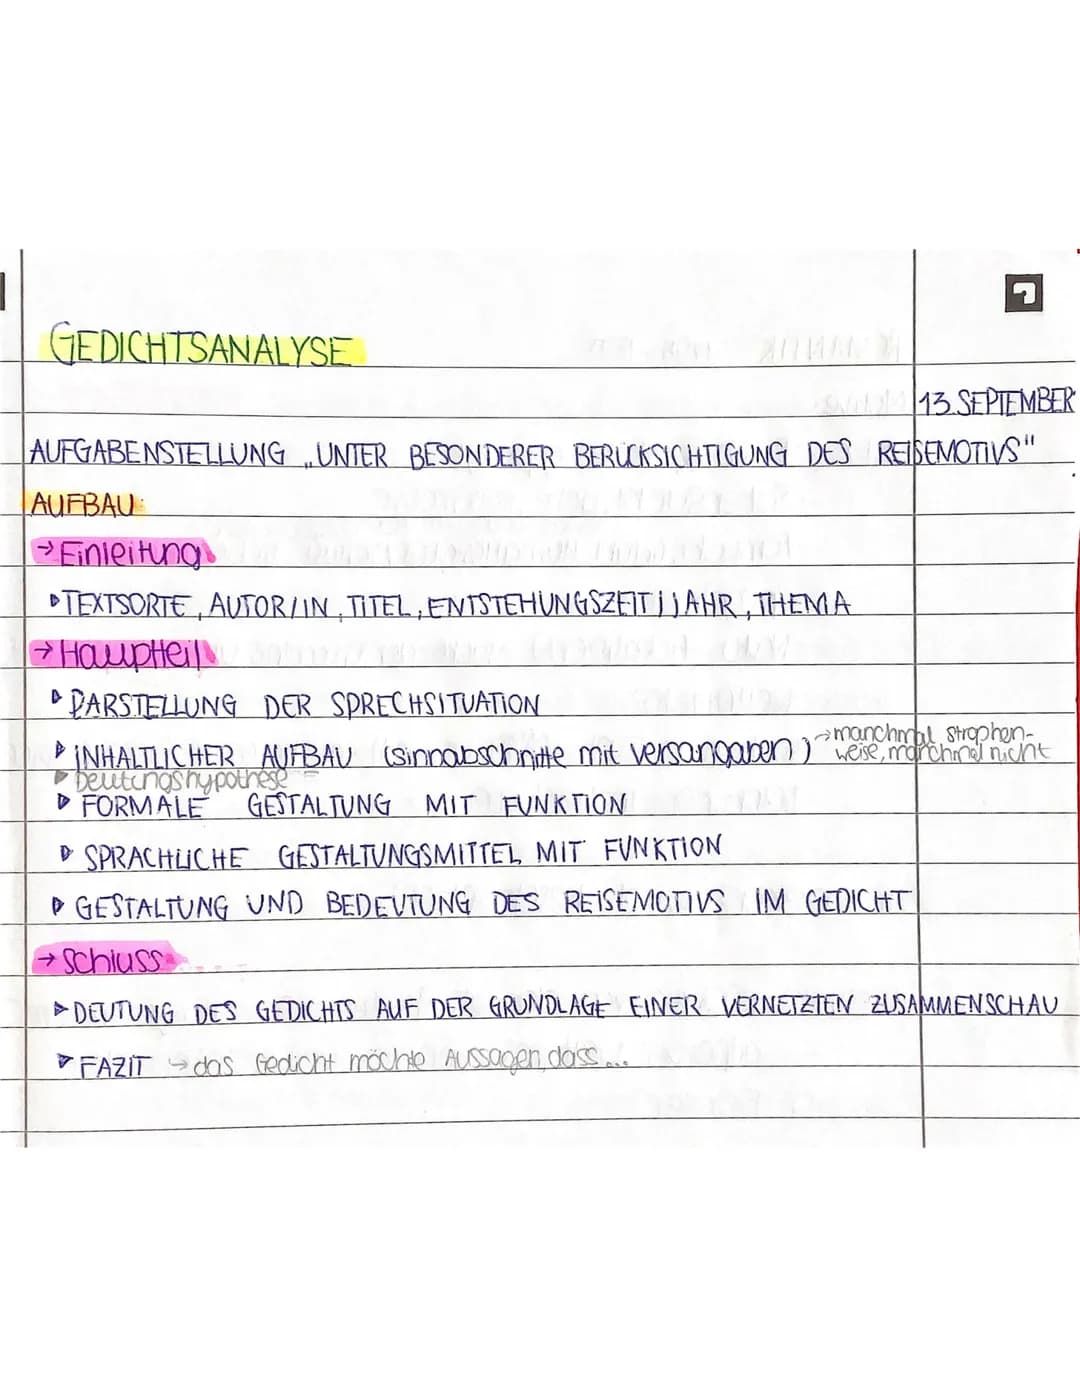 GEDICHTSANALYSE
13. SEPTEMBER
AUFGABENSTELLUNG „UNTER BESONDERER BERÜCKSICHTIGUNG DES REISEMOTIVS"
AUFBAU:
→ Einleitung
▷ TEXTSORTE, AUTOR/IN, TITEL, ENTSTEHUNGSZEIT / JAHR, THEMA
→ Hauptteil
▷ DARSTELLUNG DER SPRECHSITUATION
▷ INHALTLICHER AUFBAU (sinnabschnitte mit versangaben) → manchmal strophen-
weise, manchmal nicht
▷ Deutungshypothese
▷ FORMALE GESTALTUNG MIT FUNKTION
▷ SPRACHLICHE GESTALTUNGSMITTEL MIT FUNKTION
▷ GESTALTUNG UND BEDEUTUNG DES REISEMOTIVS IM GEDICHT
→ Schluss
▷ DEUTUNG DES GEDICHTS AUF DER GRUNDLAGE EINER VERNETZTEN ZUSAMMENSCHAU
▷ FAZIT → das Gedicht möchte Aussagen, dass...